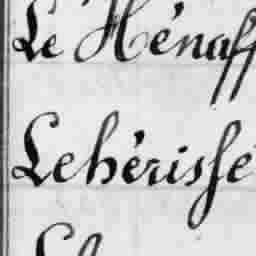 Le Hénaff
Lehérissé